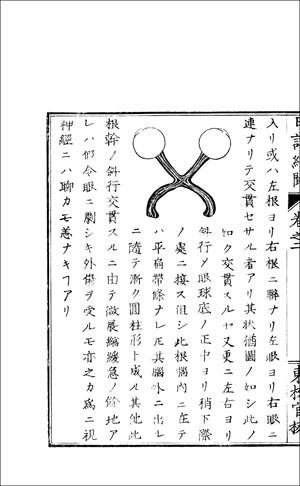 日講紀聞 巻之二 東校官板
入リ或ハ左根ヨリ右根ニ聯ナリ左眼ヨリ右眼ニ
連ナリテ交貫セサル者アリ其状猶圖ノ如シ此ノ
如ク交貫スルヤ又更ニ左右ヨリ
斜行メ眼球底ノ正中ヨリ稍下際
ノ處ニ接ス但シ此根腦内ニ在テ
ハ平扁帶條ナレ𪜈其腦外ニ出レ
ニ隨テ漸ク圓柱形ト成ル其他此
根幹ノ斜行交貫スルニ由テ微展縮緩急ノ餘地ア
レハ假令眼ニ劇シキ外傷ヲ受ルモ亦之カ為ニ視
神經ニハ聊カモ恙ナキフアリ